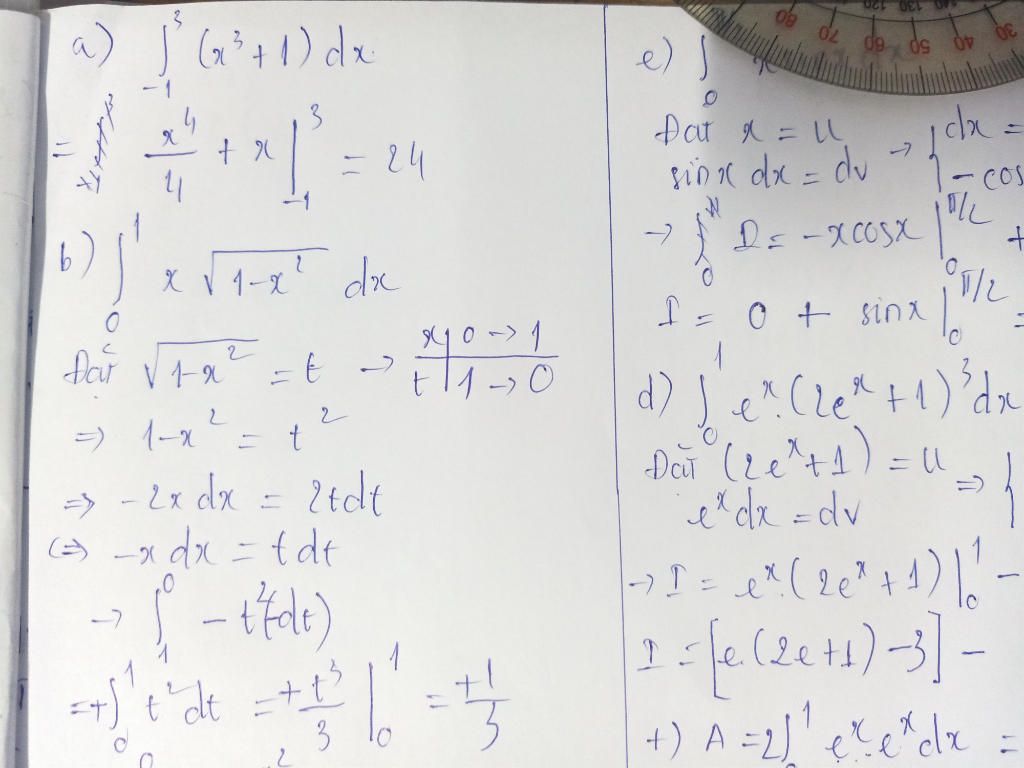 a) ∫₋₁³ (x³ + 1) dx
= x⁴/4 + x |₋₁³ = 24
b) ∫₀¹ x √(1-x²) dx
Đặt √(1-x²) = t → x | 0 → 1
t | 1 → 0
⇒ 1-x² = t²
⇒ -2x dx = 2t dt
⇔ -x dx = t dt
→ ∫₁⁰ - t²(dt)
= + ∫₀¹ t² dt = +t³/3 |₀¹ = +1/3
80 70 60 50 40 30
110 120 130
e) ∫₀ x
Đặt x = u → { dx =
sinx dx = dv { -cos
→ ∫₀ I = -xcosx |₀^π/2 +
I = 0 + sinx |₀^π/2 =
d) ∫₀¹ eˣ.(2eˣ + 1)³ dx
Đặt (2eˣ+1) = u ⇒ {
eˣ dx = dv
→ I = eˣ.(2eˣ + 1) |₀¹ -
I = [e.(2e+1) - 3] -
+) A = 2∫₀¹ eˣ.eˣ dx =